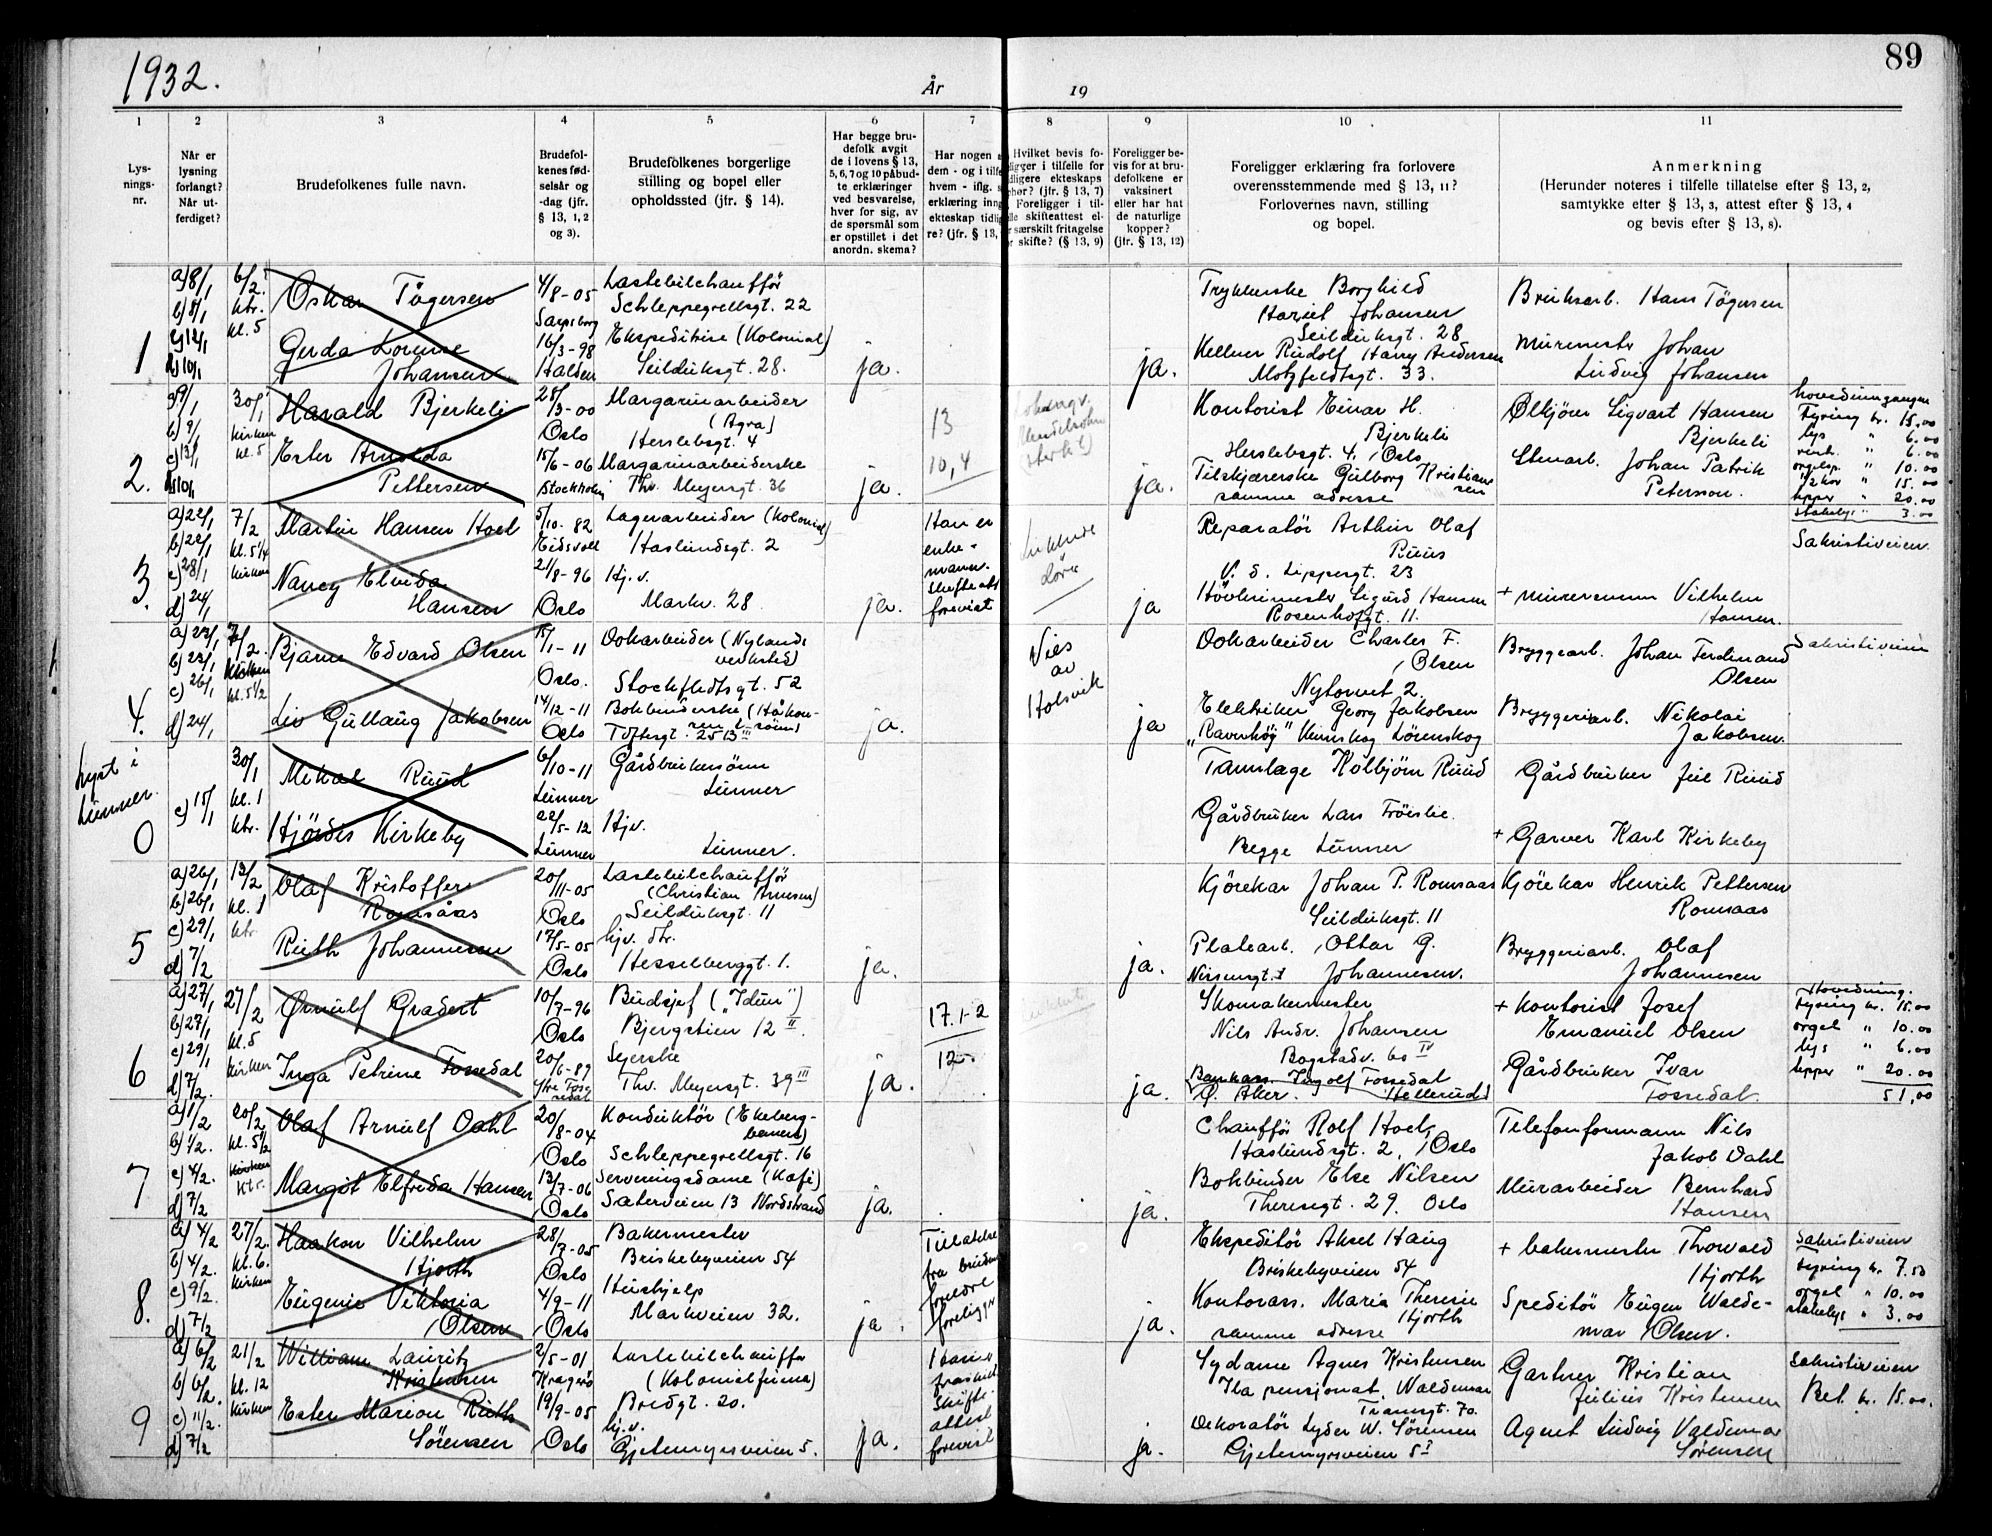 1932.
År
19
89
1
2
3
4
5
6
7
8
9
10
11
Lys-
nings-
nr.
Når er
lysning
forlangt?
Når ut-
ferdiget?
Brudefolkenes fulle navn.
Brudefol-
kenes fød-
selsår og
-dag (jfr.
§ 13, 1, 2
og 3).
Brudefolkenes borgerlige
stilling og bopel eller
opholdssted (jfr. § 14).
Har begge bru-
defolk avgit
de i lovens § 13,
5, 6, 7 og 10 påbud-
te erklæringer
ved besvarelse,
hver for sig, av
de spørsmål som
er opstillet i det
anordn. skema?
Har nogen a
dem - og i tilfe
hvem - iflg. s
erklæring inng
ekteskap tidlig
re? (jfr. § 13,
Hvilket bevis fo-
ligger i tilfelle for
dligere ekteskaps
phør? (jfr. § 13, 7)
Foreligger i til-
lle skifteattest el-
r særskilt fritagelse
or skifte? (§ 13, 9)
Foreligger be-
vis for at bru-
defolkene er
vaksinert
eller har hat
de naturlige
kopper?
(jfr. § 13, 12)
Foreligger erklæring fra forlovere
overensstemmende med § 13, 11?
Forlovernes navn, stilling
og bopel.
Anmerkning
(Herunder noteres i tilfelle tillatelse efter § 13, 2,
samtykke efter § 13, 3, attest efter § 13, 4
og bevis efter § 13, 8).
1
a) 8/1
b) 8/1
c) 12/1
d) 10/1
6/2.
ktr.
kl. 5
Oskar Tögersen
Gerda Lorense
Johansen
4/8-05
Sarpsborg
16/3-98
Halden
Lastebilchaufför
Schleppegrellsgt. 22
Ekspeditrise (Kolonial)
Seilduksgt. 28.
ja.
ja.
Trykkerske Borghild
Hariet Johansen
Seilduksgt. 28
Kellner Rudolf Harry Andersen
Motzfeldtsgt. 33.
Bruksarb. Hans Tögersen
Murmestr Johan
Ludvig Johansen
2.
a) 9/1
b) 9/1
c) 13/1
d) 10/1
30/1
kirken
kl. 5
Harald Bjerkeli
Ester Arnolda
Pettersen
28/3-00
Oslo
15/6-06
Stockholm
Margarinarbeider
(Agra)
Herslebsgt. 4
Margarinarbeiderske
Thv. Meyersgt. 36
ja.
13
10,4
ja.
Kontorist Einar H.
Bjerkeli
Herslebsgt. 4, Oslo
Tilskjærerske Gulborg Kristian
sen
samme adresse
Ølkjörer Sigvart Hansen
Bjerkeli
Stenarb. Johan Patrik
Peterson.
hovedinngangen
Fyring kr. 15.00
lys " 6.00
" 6.00
orgelsp. " 10.00
" 15.00
tepper " 20.00
stakelys " 3.00
3.
a) 22/1
b) 22/1
c) 28/1
d) 24/1
7/2
kl. 5 1/4
kirken
Martin Hansen Hoel
Nancy Elvida
Hansen
5/10-82
Eidsvoll
21/8-96
Oslo
Lagerarbeider (Kolonial)
Haslundsgt. 2
Hj. v.
Markv. 28
ja.
Han er
enke-
mann.
Skifteatt
forevist
Lukkede
dører
ja
Reparatør Arthur Olaf
Ruus
V. d. Lippesgt. 23
Hövlerimestr Sigurd Hansen
Rosenhofgt. 11.
+ murersvenn Vilhelm
Hansen.
Sakristiveien
4.
a) 23/1
b) 23/1
c) 26/1
d) 24/1
7/2.
Kirken
kl. 5 1/2
Bjarne Edvard Olsen
Liv Gullaug Jakobsen
15/1-11
Oslo.
14/12-11
Oslo
Dokarbeider (Nylands
verksted)
Stockfledtsgt. 52
Bokbinderske (Håkon-
sen & sönn)
Toftesgt. 25 B III
ja.
Vies
av
Holsvik
ja
Dokarbeider Charles F.
Olsen
Nytorvet 2.
Elektriker Georg Jakobsen
"Ravnhøg" Kurskog Lørenskog
Bryggearb. Johan Ferdinand
Olsen
Bryggeriarb. Nikolai
Jakobsen.
Sakristiveien
Lyst i
Lunner.
0
c) 15/1
30/1
kl. 1
ktr.
Mikal Ruud
Hjördis Kirkeby
6/10-11
Lunner
22/5-12
Lunner
Gårdbrukersönn
Lunner
Hjv.
Lunner.
Tannlæge Kolbjørn Ruud
Gårdbruker Lars Fröislie
Begge Lunner
Gårdbruker Juel Ruud
+ Garver Karl Kirkeby
5
a) 26/1
b) 26/1
c) 29/1
d) 7/2
13/2
kl. 1
ktr.
Olaf Kristoffer
Romsaas
Ruth Johannesen
20/11-05
Oslo
17/5-05
Oslo
Lastebilchauffør
(Christian Arnesen)
Seilduksgt. 11
hjv. dtr.
Hesselberggt. 1.
ja.
ja.
Kjörekar Johan P. Romsaas
Seilduksgt. 11
Platearb. Ottar G.
Nissensgt. 1 Johannesen.
Kjörekar Henrik Pettersen
Romsaas
Bryggeriarb. Olaf
Johannesen
6
a) 27/1
b) 27/1
c) 29/1
d) 7/2.
27/2
kl. 5
kirken
Ørnulf Gradert
Inga Petrine Fossedal
10/7-96
Oslo
20/6-89
Ytre Fos-
sedal
Budsjef ("Idun")
Bjergstien 12 II
Syerske
Thv. Meyersgt. 39 III
ja.
17.1-2
12
ja.
Skomakermester
Nils Andr. Johansen
Bogstadv. 60 IV
Bankass. Ingolf Fossedal
Ø. Aker. Hellerud
+ Kontorist Josef
Emanuel Olsen
Gårdbruker Ivar
Fossedal.
Hovedinng.
Fyring kr. 15.00
orgel " 10.00
lys " 6.00
tepper " 20.00
51,00
7
a) 1/2
b) 1/2.
c) 4/2.
d) 7/2
20/2
kl. 5 1/2
Kirken
Ktr.
Olaf Arnulf Dahl
Margot Elfrida Hansen
20/8-04
Oslo
13/7-06
Oslo
Konduktör (Ekeberg-
banen)
Schleppegrellsgt. 16
Serveringsdame (Kafé)
Sæterveien 13 Nordstrand
ja.
ja.
Chauffør Rolf Hoel,
Haslundsgt. 2, Oslo
Bokbinder Else Nilsen
Theresgt. 29. Oslo
Telefonformann Nils
Jakob Dahl
Murarbeider Bernhard
Hansen
8.
a) 4/2
b) 4/2.
c) 9/2.
d) 7/2
27/2.
kl. 6.
kirken
Haakon Vilhelm
Hjorth
Eugenie Viktoria
Olsen
28/7-05
Oslo
4/9-11
Oslo
Bakermester
Briskebyveien 54
Hushjelp
Markveien 32.
ja.
Tillatelse
fra brudens
foreldre
foreligger
ja.
Ekspeditør Aksel Haug
Briskebyveien 54
Kontorass. Maria Therese
Hjorth
samme adresse
+ bakermester Thorvald
Hjorth
Speditør Eugen Walde-
mar Olsen.
Sakristiveien
Fyring kr. 7.50
orgel " 10.00
stakelys " 3.00
9
a) 6/2
b) 6/2.
c) 11/2.
d) 7/2
21/2
kl. 12
kirken
William Lauritz
Kristensen
Ester Marion Ruth
Sørensen
2/5-01
Kragerø
19/9-05
Oslo
Lastebilchauffør
(Kolonialfirma)
Bredgt. 20.
hj. v.
Gjetemyrsveien 5.
ja.
Han er
fraskilt
Skifte-
attest
forevist
ja.
Sydame Agnes Kristensen
Ila pensjonat, Waldemar
Tranesgt. 70.
Dekoratør Lyder W. Sørensen
Gjetemyrsveien 5 I
Gartner Kristian
Julius Kristensen
Agent Ludvig Valdemar
Sørensen
Sakristiveien
Bet. kr. 15.00.